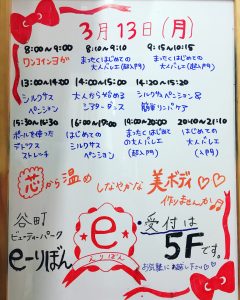 3月13日(月)
8:00～9:00 8:10～9:10 9:15～10:15
ワンコインヨガ まったくはじめての まったくはじめての
大人バレエ(超入門) 大人バレエ(超入門)
13:00～14:00 14:00～15:00 14:20～15:20
シルクサス 大人から始める シルクサスペンション&
ペンション シアターダンス 簡単リンパケア
15:30～16:30 16:00～17:00 19:00～20:00 20:10～21:10
ポールを使った はじめての まったくはじめて はじめての
ストレッチ シルクサス の大人バレエ 大人バレエ
ペンション (超入門) (入門)
芯から温め
しなやかな美ボディ♡♡
イキいきせんか
谷町
ビューティーパーク
e-りぼん
e
えりぼん
受付は
5Fです。
お気軽にお越し下さい♡